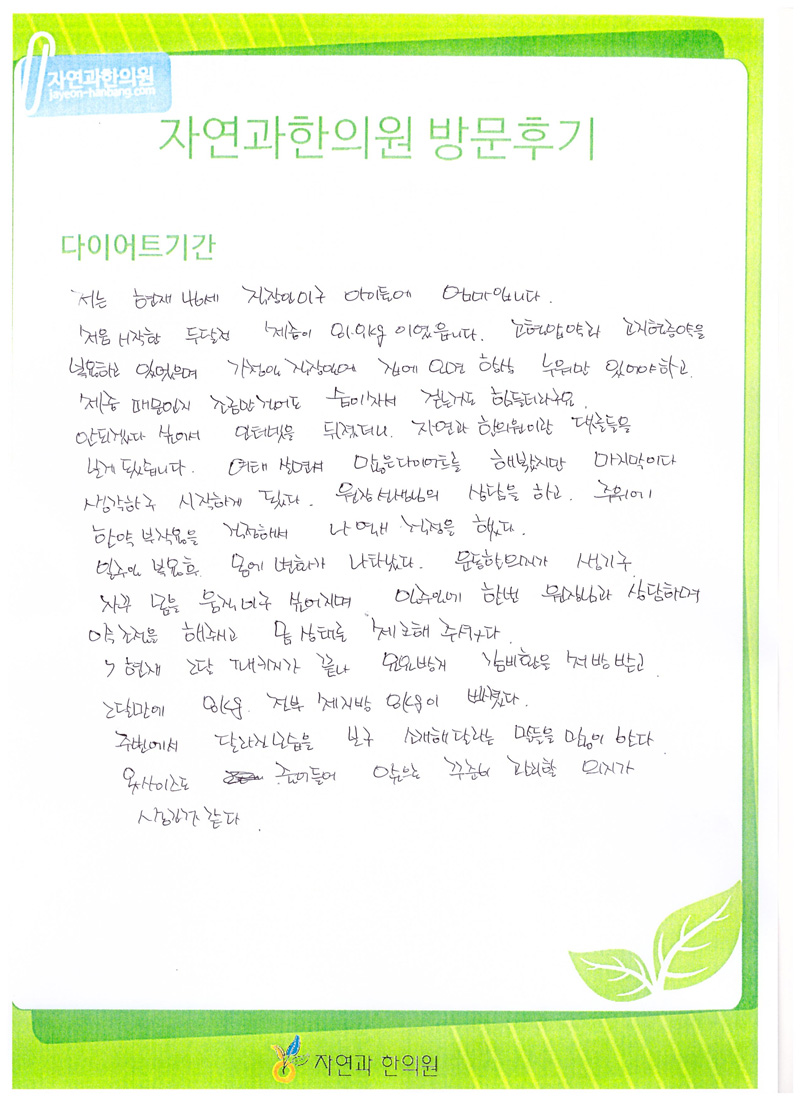 자연과한의원
jayeon-hanbang.com
자연과한의원 방문후기
다이어트기간
저는 현재 46세 직장인이구 아이둘에 엄마입니다.
처음 시작한 두달전 체중이 이였읍니다. 고혈압약과 고지혈증약을
복용하고 있었으며 가정일 직장일에 집에 오면 항상 누워만 있어야하고.
체중 때문인지 조금만 걸어도 숨이차서 걷는거도 힘들더라구요.
안되겠다 싶어서 인터넷을 뒤졌더니. 자연과 한의원이란 댓글들을
보게 됬습니다. 여태 살면서 많은다이어트를 해봤지만 마지막이다
생각하구 시작하게 됬다. 원장선생님의 상담을 하고. 주위에
한약 부작용을 걱정해서 나 역시 걱정을 했다.
일주일 복용후 몸에 변화가 나타났다. 운동할의지가 생기구
자꾸 몸을 움직이구 싶어지며 일주일에 한번 원장님과 상담하며
약조절을 해주시고 몸 상태를 체크해 주셨다.
현재 2달 패키지가 끝나 요요방지 감비환을 처방받고
2달만에 전부 체지방 이 빠졌다.
주변에서 달라진모습을 보구 소개해달라는 말들을 많이 한다
옷사이즈도 줄어들어 앞으로 꾸준히 관리할 의지가
생긴거 같다.
자연과 한의원